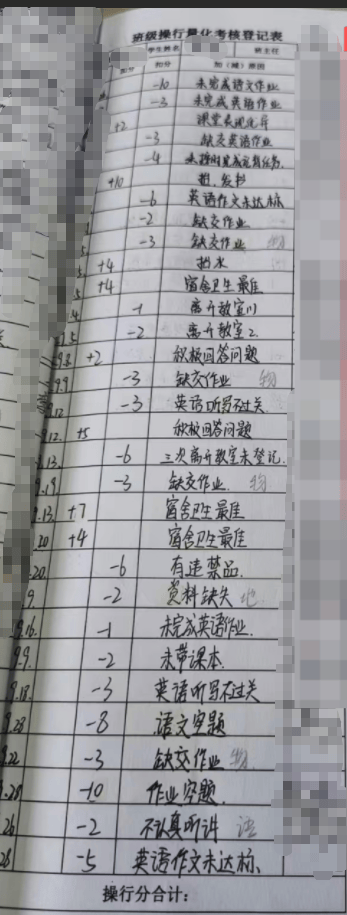 班级操行量化考核登记表
学生姓名 班主任
加分 扣分 加（减）原因
-10 未完成语文作业
-3 未完成英语作业
+2 课堂表现优异
-3 缺交英语作业
-4 未按时完成背任务.
+10
-6 英语作文未达标
-2 缺交作业
-3 缺交作业 物
+4 抬水
+4 宿舍卫生最佳
-1 离开教室1
-2 离开教室2.
9.8. +2 积极回答问题
9.9 -3 缺交作业 物
9.12 -3 英语听写不过关.
9.12. +5 积极回答问题
9.13. -6 三次离开教室未登记.
9.19 -3 缺交作业. 物
9.13. +7 宿舍卫生最佳
.20 +4 宿舍卫生最佳
.20. -6 有违禁品.
9. -2 资料缺失 地
9.16. -1 未完成英语作业.
9.9. -2 未带课本.
9.18. -3 英语听写不过关
9.28 -8 语文空题
9.22 -3 缺交作业 物
.28 -10 作业空题.
26 -2 不认真听讲 语
28 -5 英语作文未达标、
操行分合计：